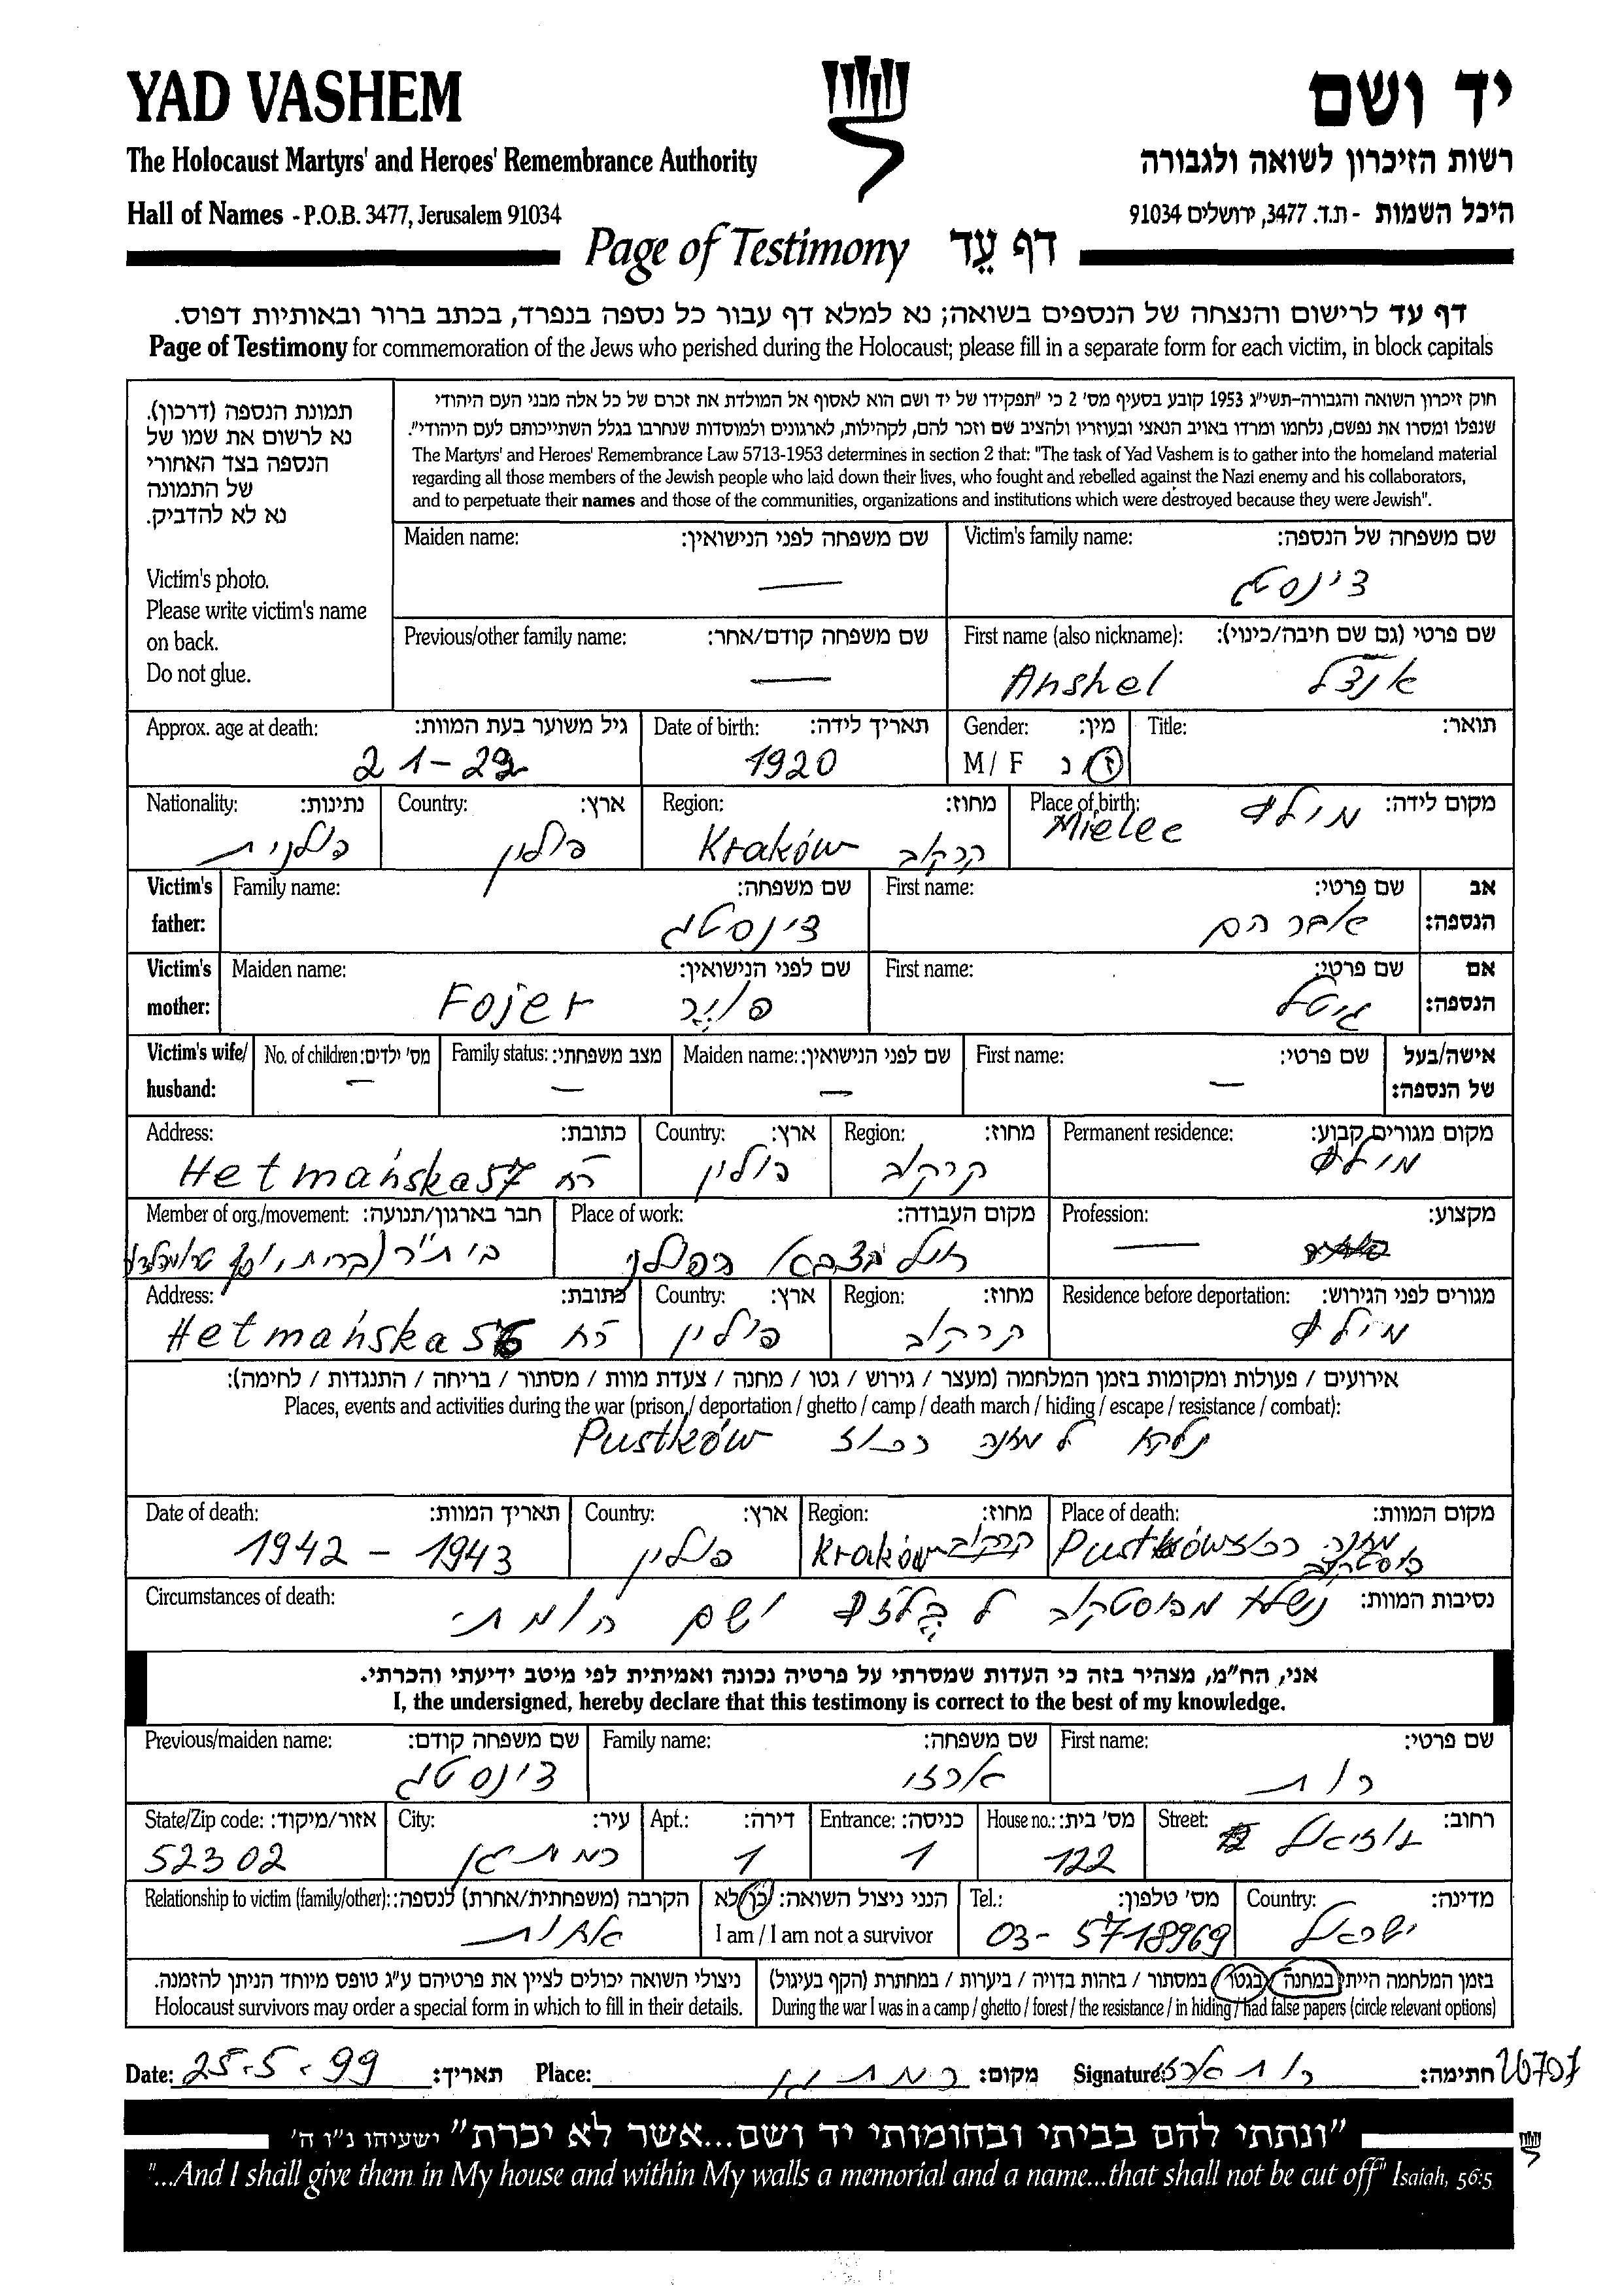 YAD VASHEM
יד ושם
The Holocaust Martyrs' and Heroes' Remembrance Authority
רשות הזיכרון לשואה ולגבורה
Hall of Names - P.O.B. 3477, Jerusalem 91034
היכל השמות - ת.ד. 3477, ירושלים 91034
Page of Testimony דף עֵד
דף עד לרישום והנצחה של הנספים בשואה; נא למלא דף עבור כל נספה בנפרד, בכתב ברור ובאותיות דפוס.
Page of Testimony for commemoration of the Jews who perished during the Holocaust; please fill in a separate form for each victim, in block capitals
תמונת הנספה (דרכון).
נא לרשום את שמו של
הנספה בצד האחורי
של התמונה
נא לא להדביק.
Victim's photo.
Please write victim's name
on back.
Do not glue.
חוק זיכרון השואה והגבורה-תשי"ג 1953 קובע בסעיף מס' 2 כי "תפקידו של יד ושם הוא לאסוף אל המולדת את זכרם של כל אלה מבני העם היהודי
שנפלו ומסרו את נפשם, נלחמו ומרדו באויב הנאצי ובעוזריו ולהציב שם וזכר להם, לקהילות, לארגונים ולמוסדות שנחרבו בגלל השתייכותם לעם היהודי".
The Martyrs' and Heroes' Remembrance Law 5713-1953 determines in section 2 that: "The task of Yad Vashem is to gather into the homeland material
regarding all those members of the Jewish people who laid down their lives, who fought and rebelled against the Nazi enemy and his collaborators,
and to perpetuate their names and those of the communities, organizations and institutions which were destroyed because they were Jewish".
Victim's family name: שם משפחה של הנספה:
דינסטג
Maiden name: שם משפחה לפני הנישואין:
—
First name (also nickname): שם פרטי (גם שם חיבה/כינוי):
Anshel אנשל
Previous/other family name: שם משפחה קודם/אחר:
—
Title: תואר:
Gender: מין:
M / F ז נ
Date of birth: תאריך לידה:
1920
Approx. age at death: גיל משוער בעת המוות:
21-22
Place of birth: מקום לידה:
Mielec מילץ
Region: מחוז:
Kraków קרקוב
Country: ארץ:
פולין
Nationality: נתינות:
פולנית
Victim's father: אב הנספה:
First name: שם פרטי:
אברהם
Family name: שם משפחה:
דינסטג
Victim's mother: אם הנספה:
First name: שם פרטי:
גיטל
Maiden name: שם לפני הנישואין:
Fojer פויר
Victim's wife/ husband: אישה/בעל של הנספה:
First name: שם פרטי:
—
Maiden name: שם לפני הנישואין:
—
Family status: מצב משפחתי:
—
No. of children: מס' ילדים:
—
Permanent residence: מקום מגורים קבוע:
מילץ
Region: מחוז:
קרקוב
Country: ארץ:
פולין
Address: כתובת:
Hetmańska 57 רח
Profession: מקצוע:
—
Place of work: מקום העבודה:
חיל בצבא הפולני
Member of org./movement: חבר בארגון/תנועה:
בית"ר (ברית יוסף טרומפלדור
Residence before deportation: מגורים לפני הגירוש:
מילץ
Region: מחוז:
קרקוב
Country: ארץ:
פולין
Address: כתובת:
Hetmańska רח
אירועים / פעולות ומקומות בזמן המלחמה (מעצר / גירוש / גטו / מחנה / צעדת מוות / מסתור / בריחה / התנגדות / לחימה):
Places, events and activities during the war (prison / deportation / ghetto / camp / death march / hiding / escape / resistance / combat):
נלקח למחנה ריכוז Pustków
Place of death: מקום המוות:
Pustków ריכוז מחנה
פוסטקוב
Region: מחוז:
Kraków קרקוב
Country: ארץ:
פולין
Date of death: תאריך המוות:
1942 - 1943
Circumstances of death: נסיבות המוות:
נשלח מפוסטקוב לבלזץ ושם הומת
אני, הח"מ, מצהיר בזה כי העדות שמסרתי על פרטיה נכונה ואמיתית לפי מיטב ידיעתי והכרתי.
I, the undersigned, hereby declare that this testimony is correct to the best of my knowledge.
First name: שם פרטי:
רות
Family name: שם משפחה:
ארזי
Previous/maiden name: שם משפחה קודם:
דינסטג
Street: רחוב:
עוזיאל
House no.: מס' בית:
122
Entrance: כניסה:
1
Apt.: דירה:
1
City: עיר:
רמת גן
State/Zip code: אזור/מיקוד:
52302
Country: מדינה:
ישראל
Tel.: מס' טלפון:
03-5718969
הנני ניצול השואה: כן/לא
I am / I am not a survivor
Relationship to victim (family/other): הקרבה (משפחתית/אחרת) לנספה:
אחות
בזמן המלחמה הייתי במחנה / בגטו / במסתור / בזהות בדויה / ביערות / במחתרת (הקף בעיגול)
During the war I was in a camp / ghetto / forest / the resistance / in hiding / had false papers (circle relevant options)
ניצולי השואה יכולים לציין את פרטיהם ע"ג טופס מיוחד הניתן להזמנה.
Holocaust survivors may order a special form in which to fill in their details.
Date: 25.5.99 תאריך: Place: רמת גן מקום: Signature: רות ארזי חתימה:
"ונתתי להם בביתי ובחומותי יד ושם...אשר לא יכרת" ישעיהו נ"ו ה'
"...And I shall give them in My house and within My walls a memorial and a name...that shall not be cut off" Isaiah, 56:5